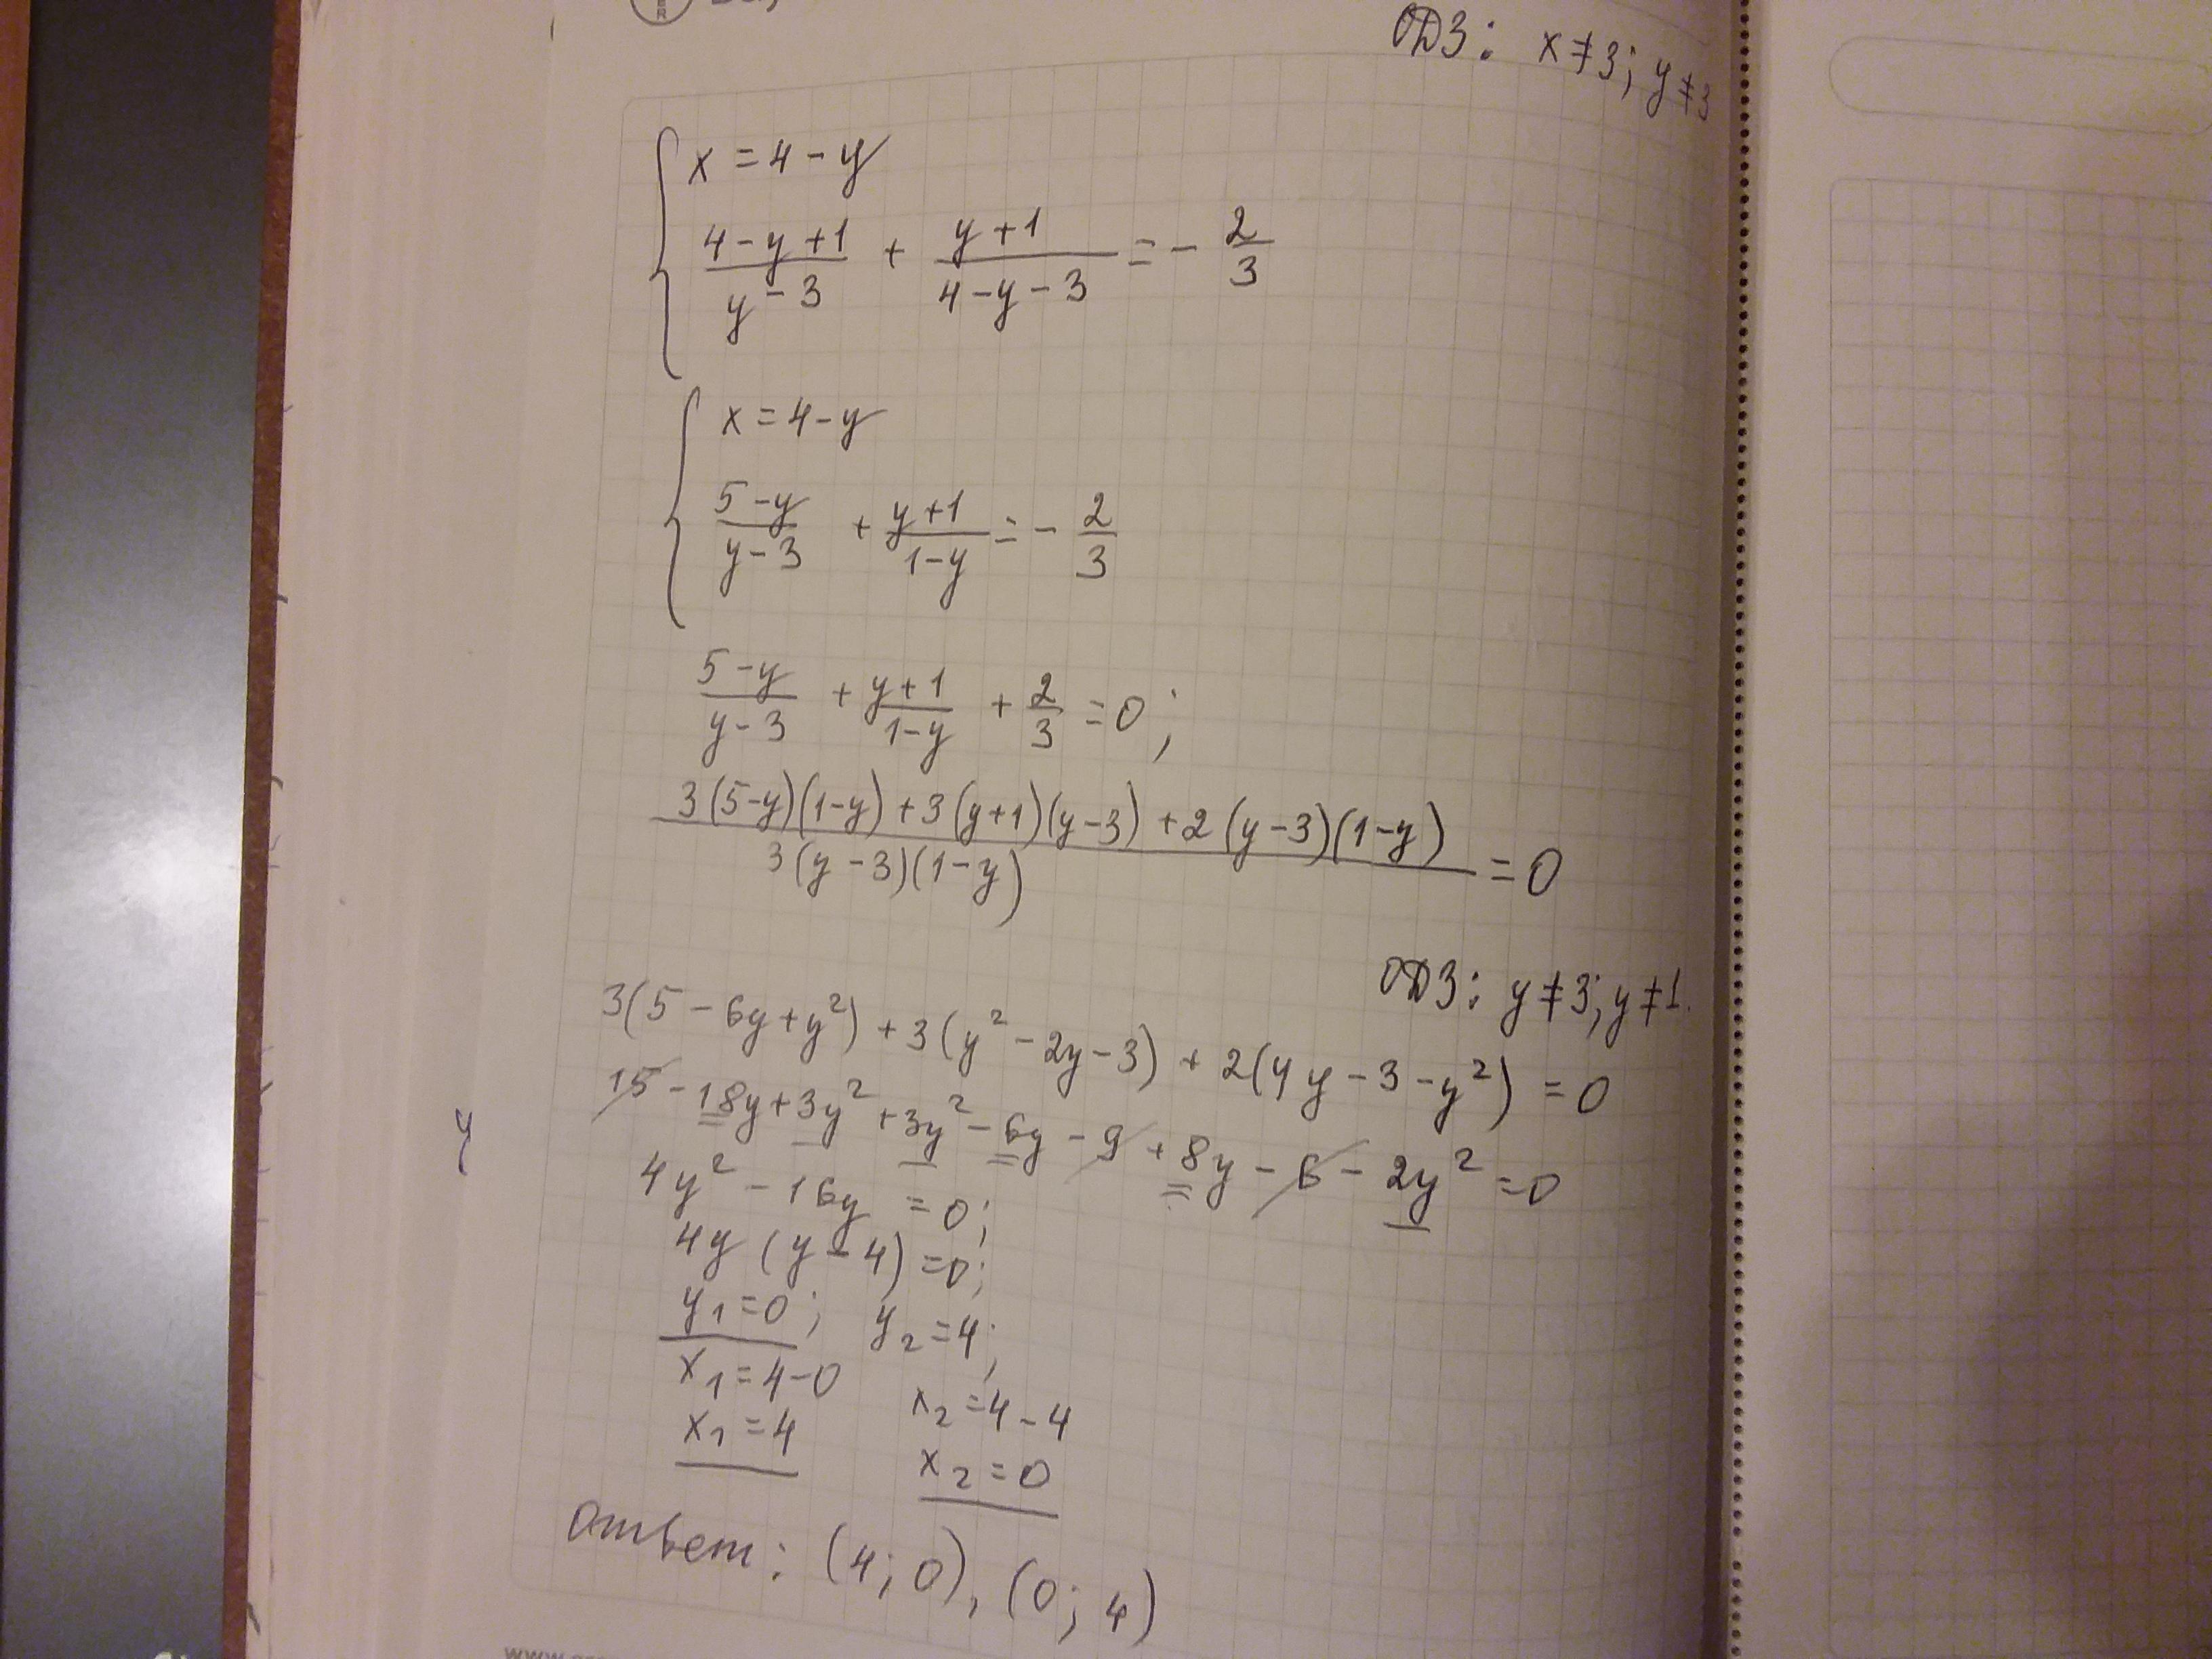 ОДЗ: x ≠ 3; y ≠ 3
x = 4 - y
(4 - y + 1)/(y - 3) + (y + 1)/(4 - y - 3) = - 2/3
x = 4 - y
(5 - y)/(y - 3) + (y + 1)/(1 - y) = - 2/3
(5 - y)/(y - 3) + (y + 1)/(1 - y) + 2/3 = 0;
(3(5 - y)(1 - y) + 3(y + 1)(y - 3) + 2(y - 3)(1 - y))/(3(y - 3)(1 - y)) = 0
ОДЗ: y ≠ 3; y ≠ 1.
3(5 - 6y + y²) + 3(y² - 2y - 3) + 2(4y - 3 - y²) = 0
15 - 18y + 3y² + 3y² - 6y - 9 + 8y - 6 - 2y² = 0
y
4y² - 16y = 0;
4y (y - 4) = 0;
y₁ = 0; y₂ = 4;
x₁ = 4 - 0 x₂ = 4 - 4
x₁ = 4 x₂ = 0
Ответ: (4; 0), (0; 4)